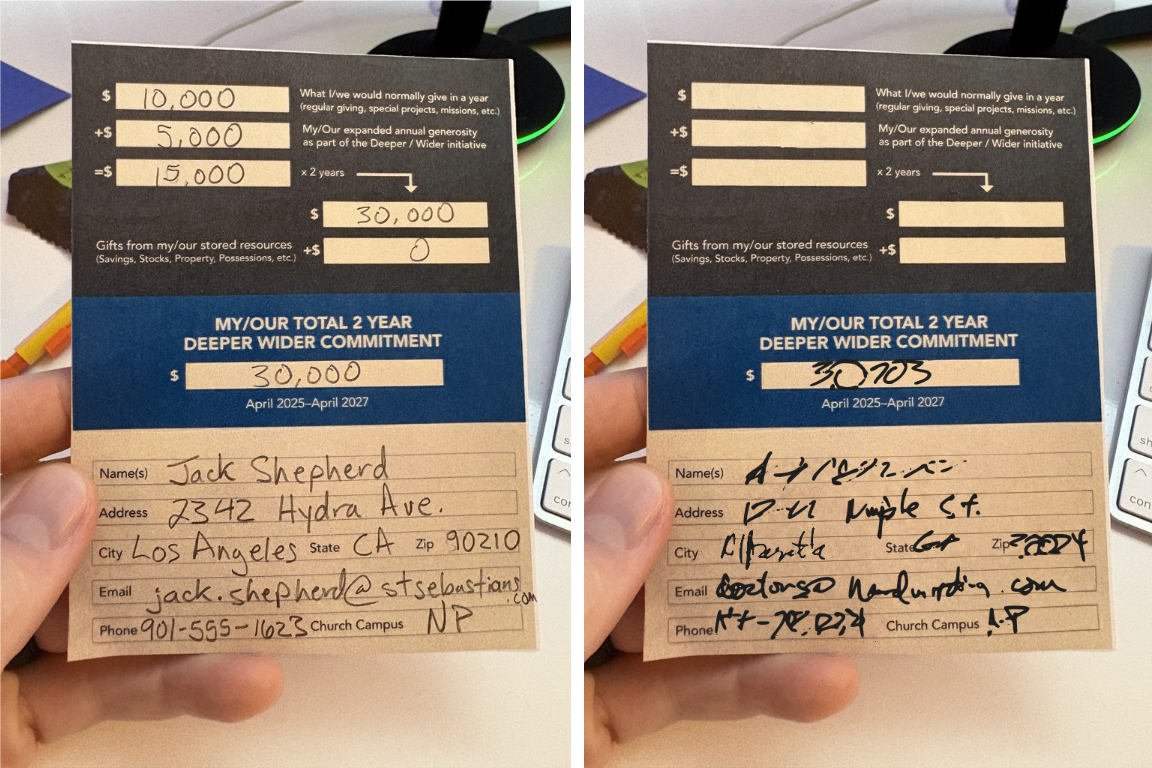 $ 10,000 What I/we would normally give in a year
(regular giving, special projects, missions, etc.)
+$ 5,000 My/Our expanded annual generosity
as part of the Deeper / Wider initiative
=$ 15,000 x 2 years
$ 30,000
Gifts from my/our stored resources +$ 0
(Savings, Stocks, Property, Possessions, etc.)
MY/OUR TOTAL 2 YEAR
DEEPER WIDER COMMITMENT
$ 30,000
April 2025–April 2027
Name(s) Jack Shepherd
Address 2342 Hydra Ave.
City Los Angeles State CA Zip 90210
Email jack.shepherd@stsebastians.com
Phone 901-555-1623 Church Campus NP
$ What I/we would normally give in a year
(regular giving, special projects, missions, etc.)
+$ My/Our expanded annual generosity
as part of the Deeper / Wider initiative
=$ x 2 years
$
Gifts from my/our stored resources +$
(Savings, Stocks, Property, Possessions, etc.)
MY/OUR TOTAL 2 YEAR
DEEPER WIDER COMMITMENT
$
April 2025–April 2027
Name(s)
Address St.
City State Zip
Email .com
Phone Church Campus